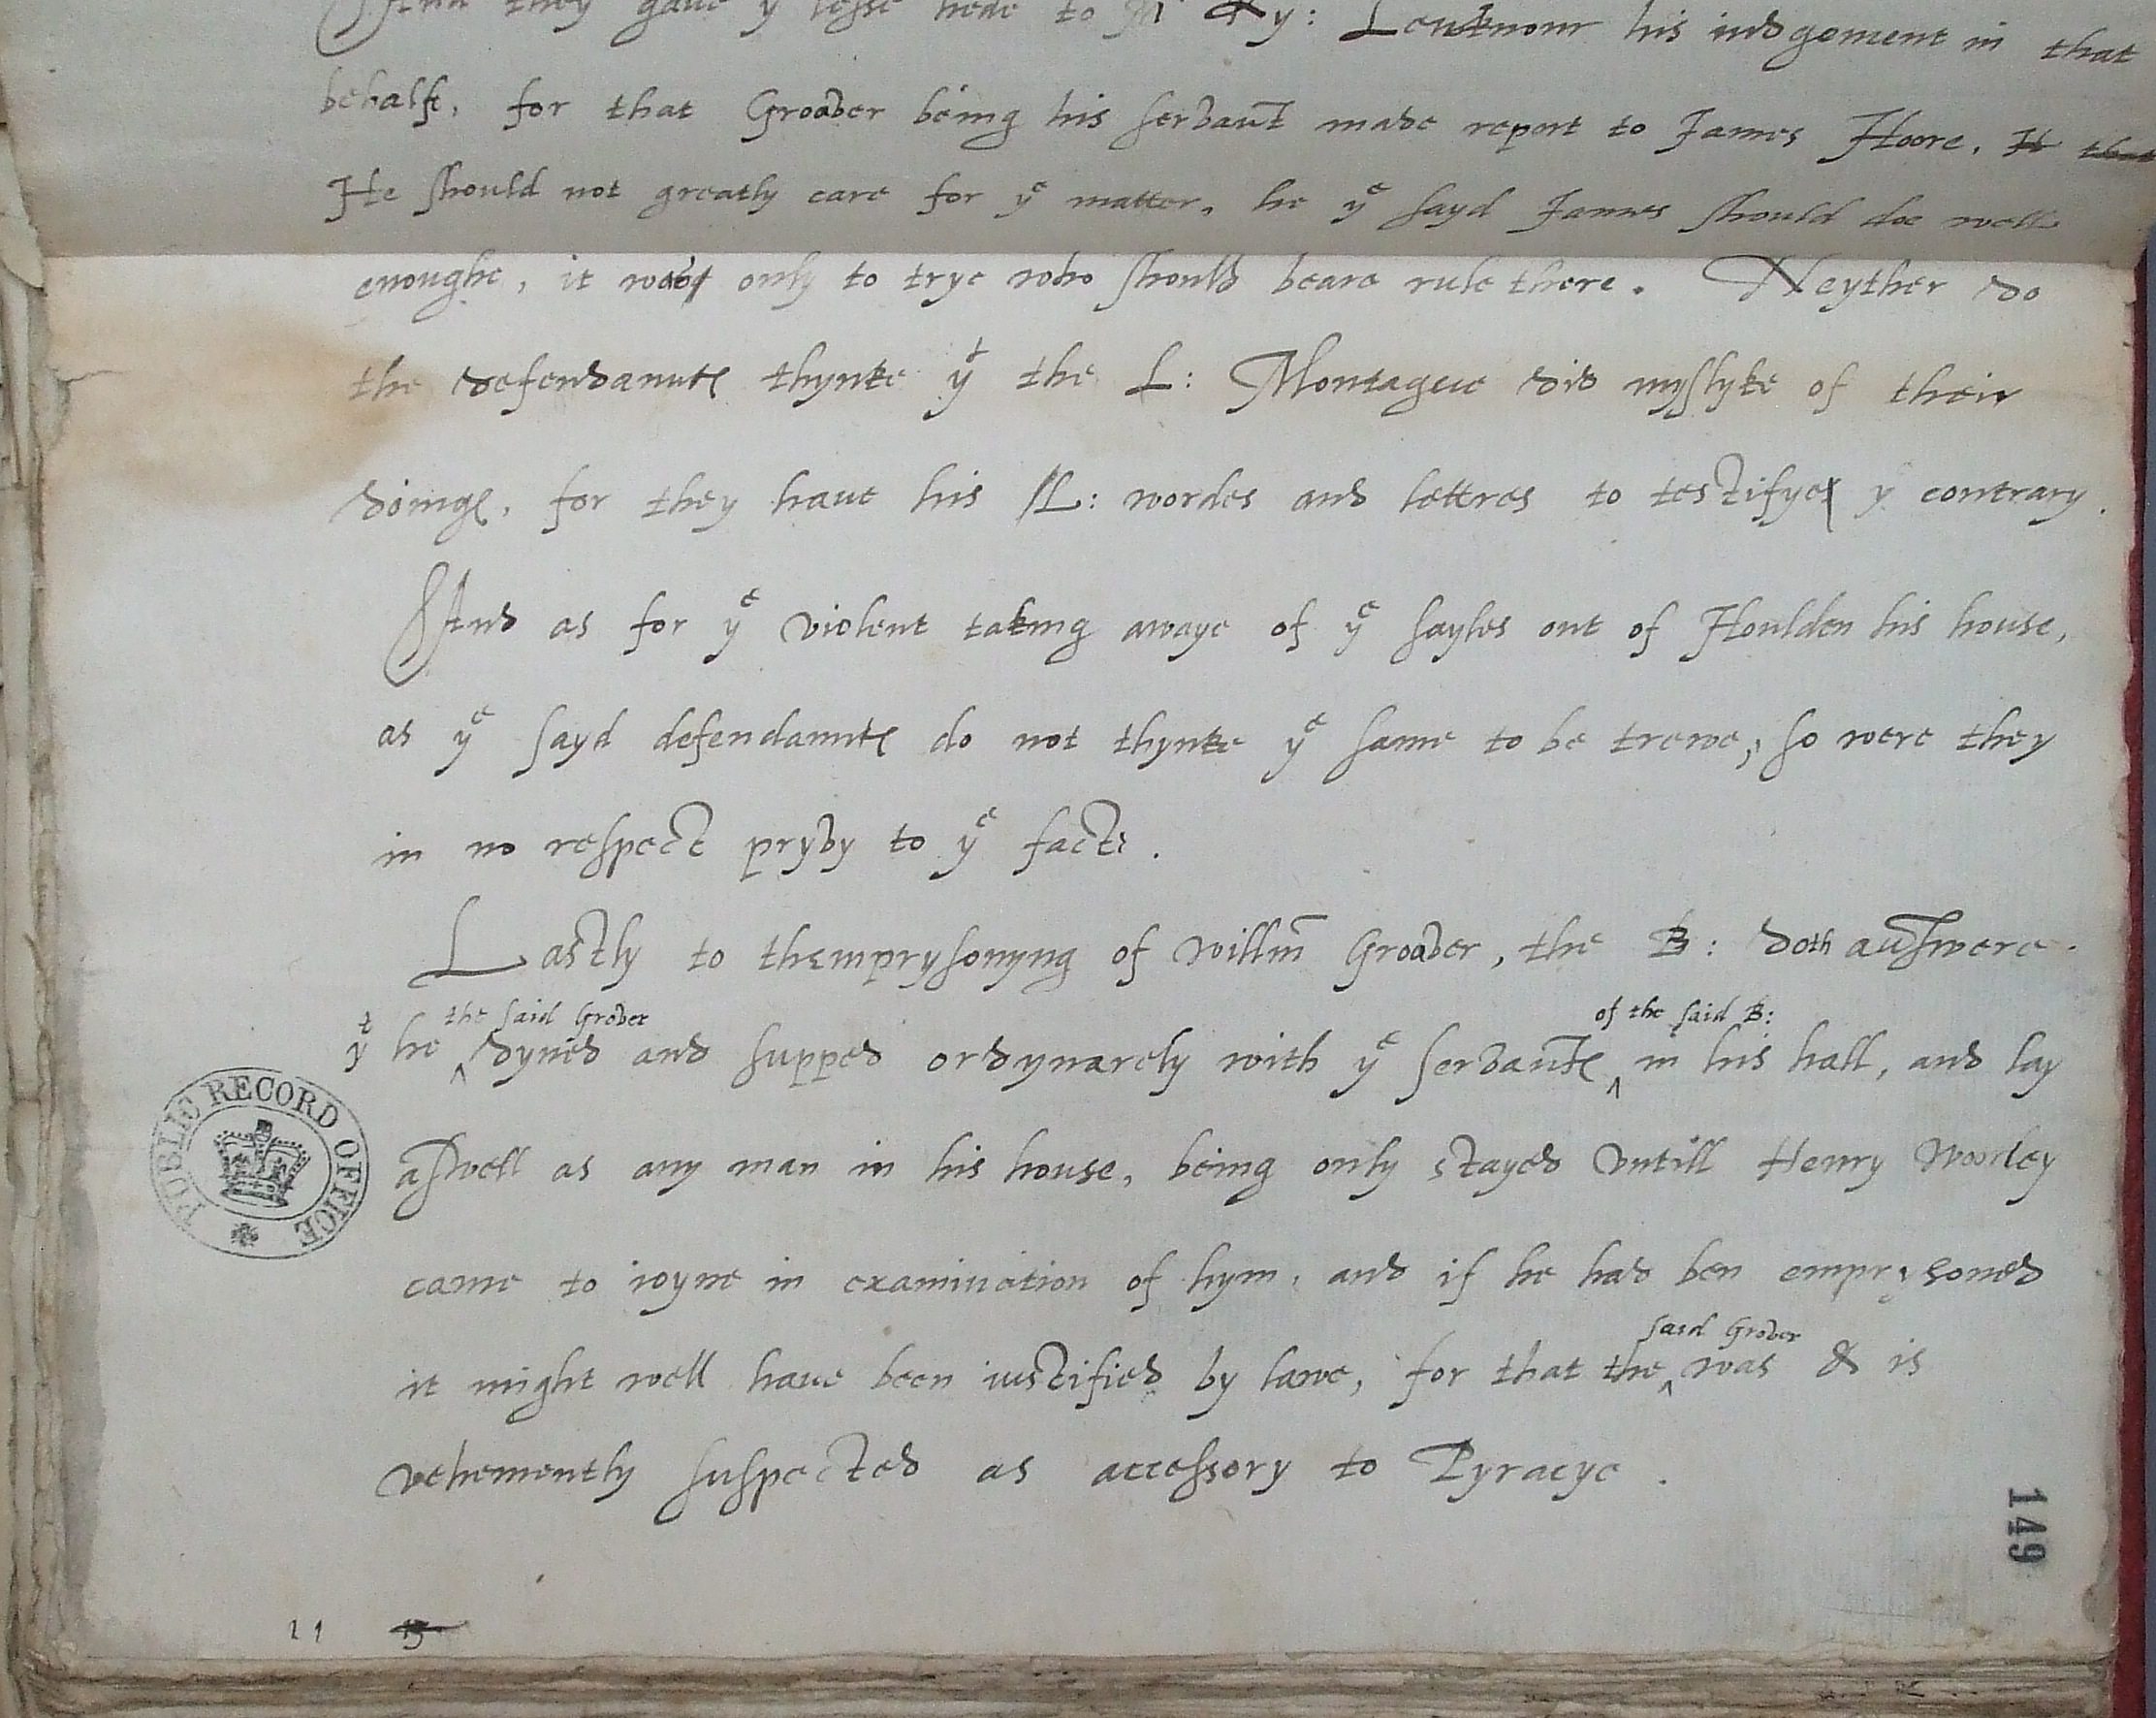 And they gave yͤ lesse hede to Mʳ Ry: Lewknour his iudgement in that
behalfe, for that Groaver being his servaūt made report to James Hoore, It that
He should not greatly care for yͤ matter, he yͤ sayd James should doe well
enoughe, it was only to trye who should beare rule there. Neyther do
the defendauntes thynke yͭ the L: Montague did myslyke of their
doinges, for they haue his L: wordes and lettres to testifye yͤ contrary.
And as for yͤ violent taking awaye of yͤ sayles out of Houlden his house,
as yͤ sayd defendauntes do not thynke yͤ same to be trewe, so were they
in no respect pryvy to yͤ facte.
Lastly to themprysonyng of Willm̄ Groaver, the B: doth aūswere.
the said Grover of the said B:
yͭ he ^ dyned and supped ordynarely with yͤ servaūtes ^ in his hall, and lay
aswell as any man in his house, being only stayed vntill Henry Woorley
came to ioyne in examination of hym, and if he had ben emprysoned
said Grover
it might well haue been iustified by lawe, for that the ^ was & is
vehemently suspected as accessory to Pyracye.
PUBLIC RECORD OFFICE
149
21 15